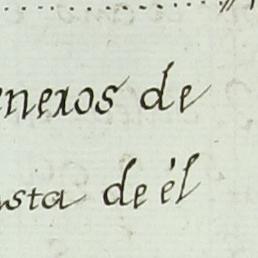 eneros de
sta de él